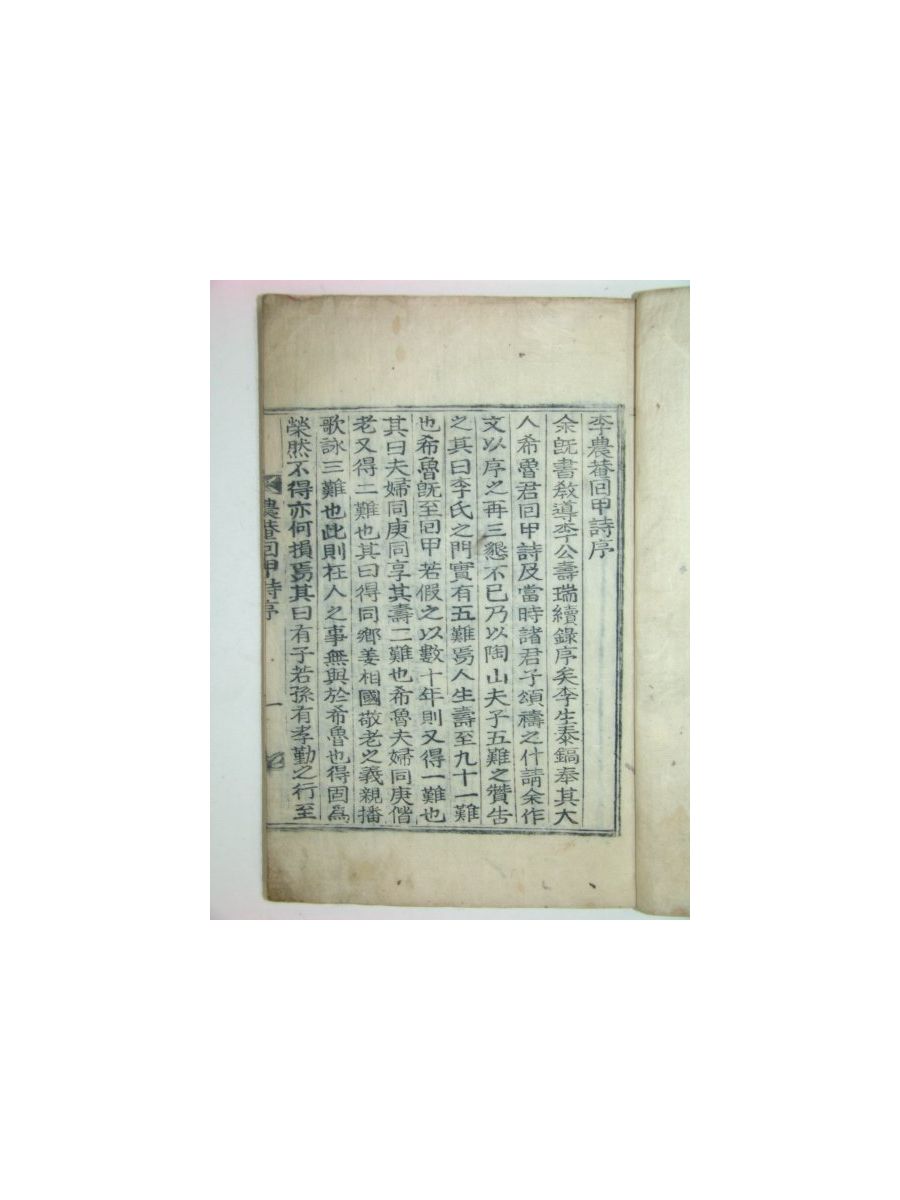 李農菴回甲詩序
余旣書敎導李公壽瑞續錄序矣李生泰鎬奉其大
人希魯君回甲詩及當時諸君子頌禱之什請余作
文以序之再三懇不已乃以陶山夫子五難之贊告
之其曰李氏之門實有五難焉人生壽至九十一難
也希魯旣至回甲若假之以數十年則又得一難也
其曰夫婦同庚同享其壽二難也希魯夫婦同庚偕
老又得二難也其曰得同鄕姜相國敬老之義親播
歌詠三難也此則在人之事無與於希魯也得固爲
榮然不得亦何損焉其曰有子若孫有孝勤之行至
農菴回甲詩序 一